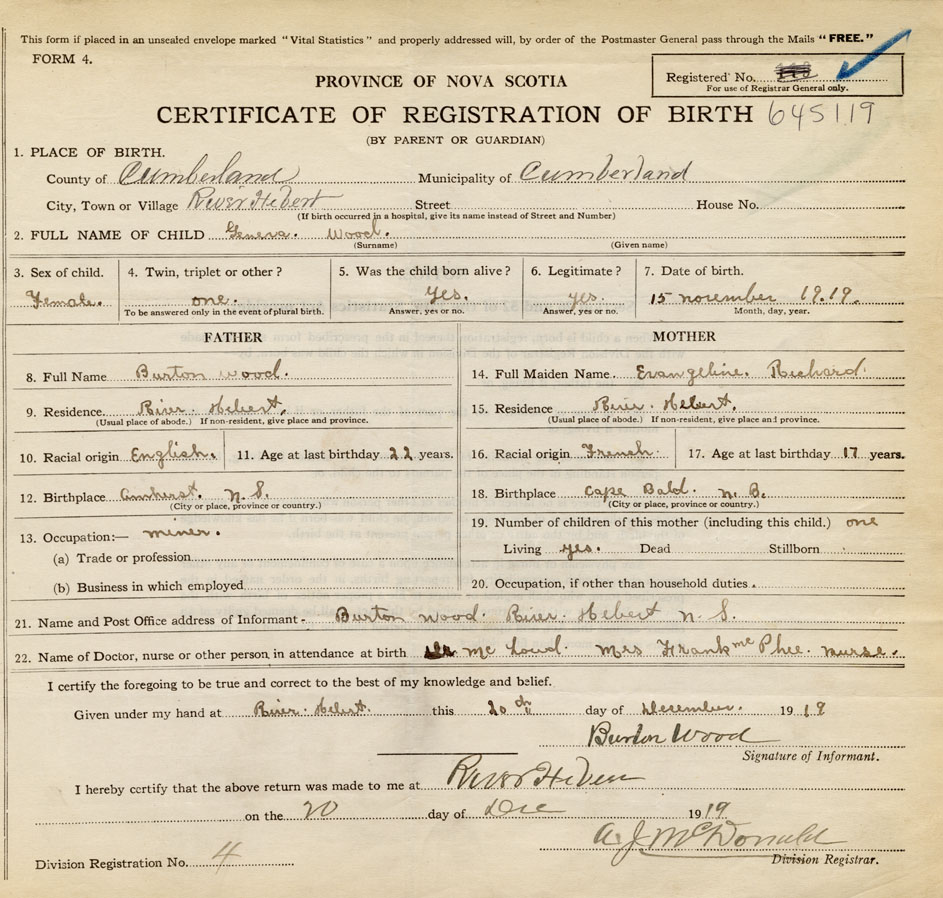 This form if placed in an unsealed envelope marked "Vital Statistics" and properly addressed will, by order of the Postmaster General pass through the Mails "FREE."
FORM 4.
PROVINCE OF NOVA SCOTIA
Registered No.
For use of Registrar General only.
CERTIFICATE OF REGISTRATION OF BIRTH 645119
(BY PARENT OR GUARDIAN)
1. PLACE OF BIRTH.
County of Cumberland Municipality of Cumberland
City, Town or Village River Hebert Street House No.
(If birth occurred in a hospital, give its name instead of Street and Number)
2. FULL NAME OF CHILD Geneva. Wood.
(Surname) (Given name)
3. Sex of child. 4. Twin, triplet or other? 5. Was the child born alive? 6. Legitimate? 7. Date of birth.
Female. one. yes. yes. 15 november 1919.
To be answered only in the event of plural birth. Answer, yes or no. Answer, yes or no. Month, day, year.
FATHER MOTHER
8. Full Name Burton wood. 14. Full Maiden Name. Evangeline. Richard
9. Residence River. Hebert. 15. Residence River. Hebert.
(Usual place of abode.) If non-resident, give place and province. (Usual place of abode.) If non-resident, give place and province.
10. Racial origin English. 11. Age at last birthday 22 years. 16. Racial origin French 17. Age at last birthday 17 years.
12. Birthplace Amherst. N. S. 18. Birthplace Cape Bald. N. B.
(City or place, province or country.) (City or place, province or country.)
13. Occupation:— miner. 19. Number of children of this mother (including this child.) one
(a) Trade or profession Living yes. Dead Stillborn
(b) Business in which employed 20. Occupation, if other than household duties.
21. Name and Post Office address of Informant- Burton wood. River. Hebert N. S.
22. Name of Doctor, nurse or other person, in attendance at birth Mrs Frank mc Phee. nurse.
I certify the foregoing to be true and correct to the best of my knowledge and belief.
Given under my hand at River. Hebert. this 20th day of December. 1919
Burton Wood
Signature of Informant.
I hereby certify that the above return was made to me at River Heber
on the 20 day of Dec 1919
A. J. McDonald
Division Registration No. 4 Division Registrar.